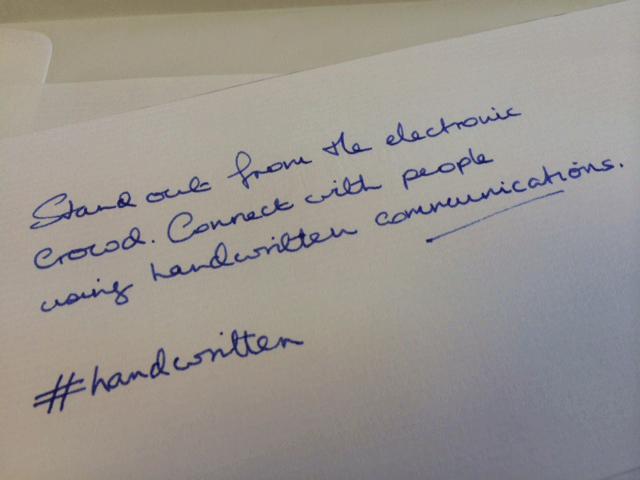 Stand out from the electronic
crowd. Connect with people
using handwritten communications.
#handwritten